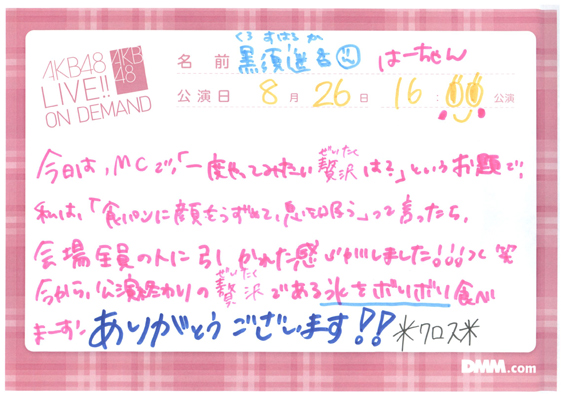 AKB48
LIVE!!
ON DEMAND
AKB
48
くろ すはる か
名 前 黒須遥香 はーちゃん
公演日 8 月 26 日 16 : 00 公演
今日は、MCで、「一度やってみたい贅沢は?」というお題で、
ぜいたく
私は、「食パンに顔もうずめて、息を吸う」って言ったら、
会場全員の人に引かれた感じがしました!!!つく 笑
ぜいたく
今から、公演終わりの贅沢である氷をボリボリ食べ
まーす!ありがとうございます!!*クロス*
DMM.com